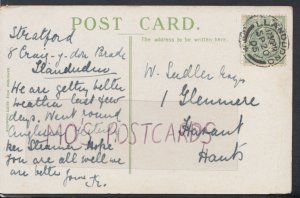 POST CARD.
The address to be written here.
Stratford
8 Craig-y-don Parade
Llandudno
We are getting better
weather last few
days. Went round
Anglesea
Steamer Hope
you are all well we
are better
W. Sudler Esqr
1 Glenmere
Havant
Hants
MO'S POSTCARDS